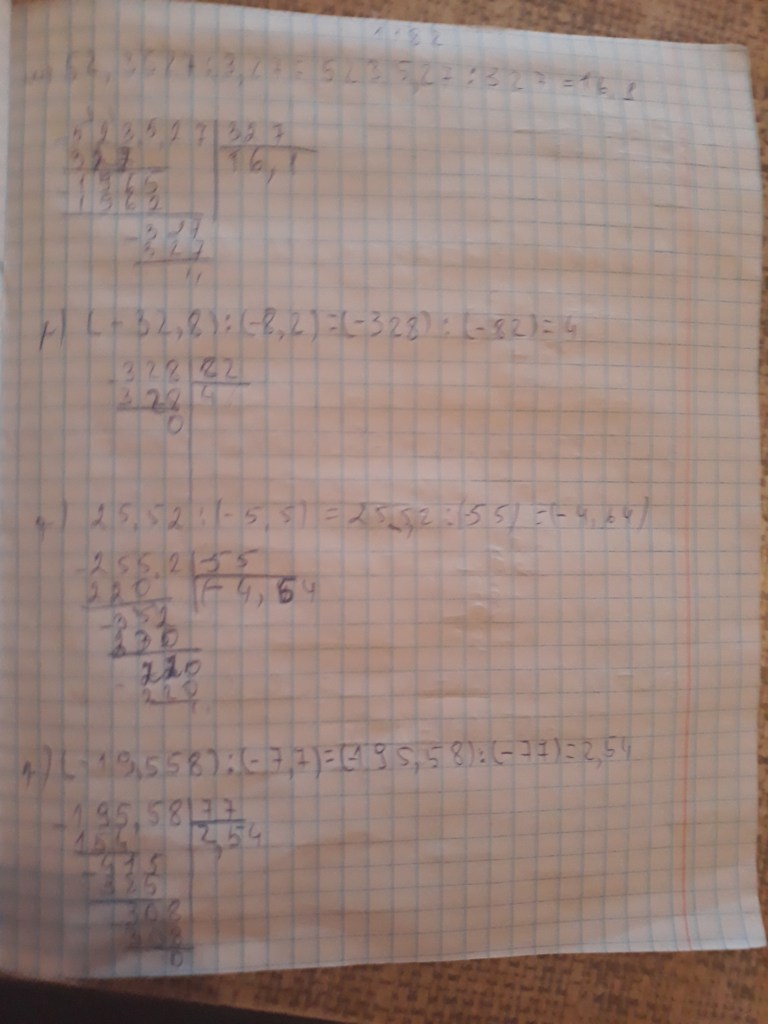 5235,27 : 327 = 16,1
5 2 3 5,2 7 | 327
3 2 7 | 16,1
1 9 6 5
1 9 6 2
- 3 2 7
3 2 7
(-32,8) : (-8,2) = (-328) : (-82) = 4
- 328 | 82
328 | 4
0
25,52 : (-5,5) = 255,2 : (-55) =
- 255,2 | -55
220 | (-4,64
- 352
330
220
220
(-19,558) : (-7,7) = (-195,58) : (-77) = 2,54
- 195,58 | 77
154 | 2,54
- 415
385
308
308
0